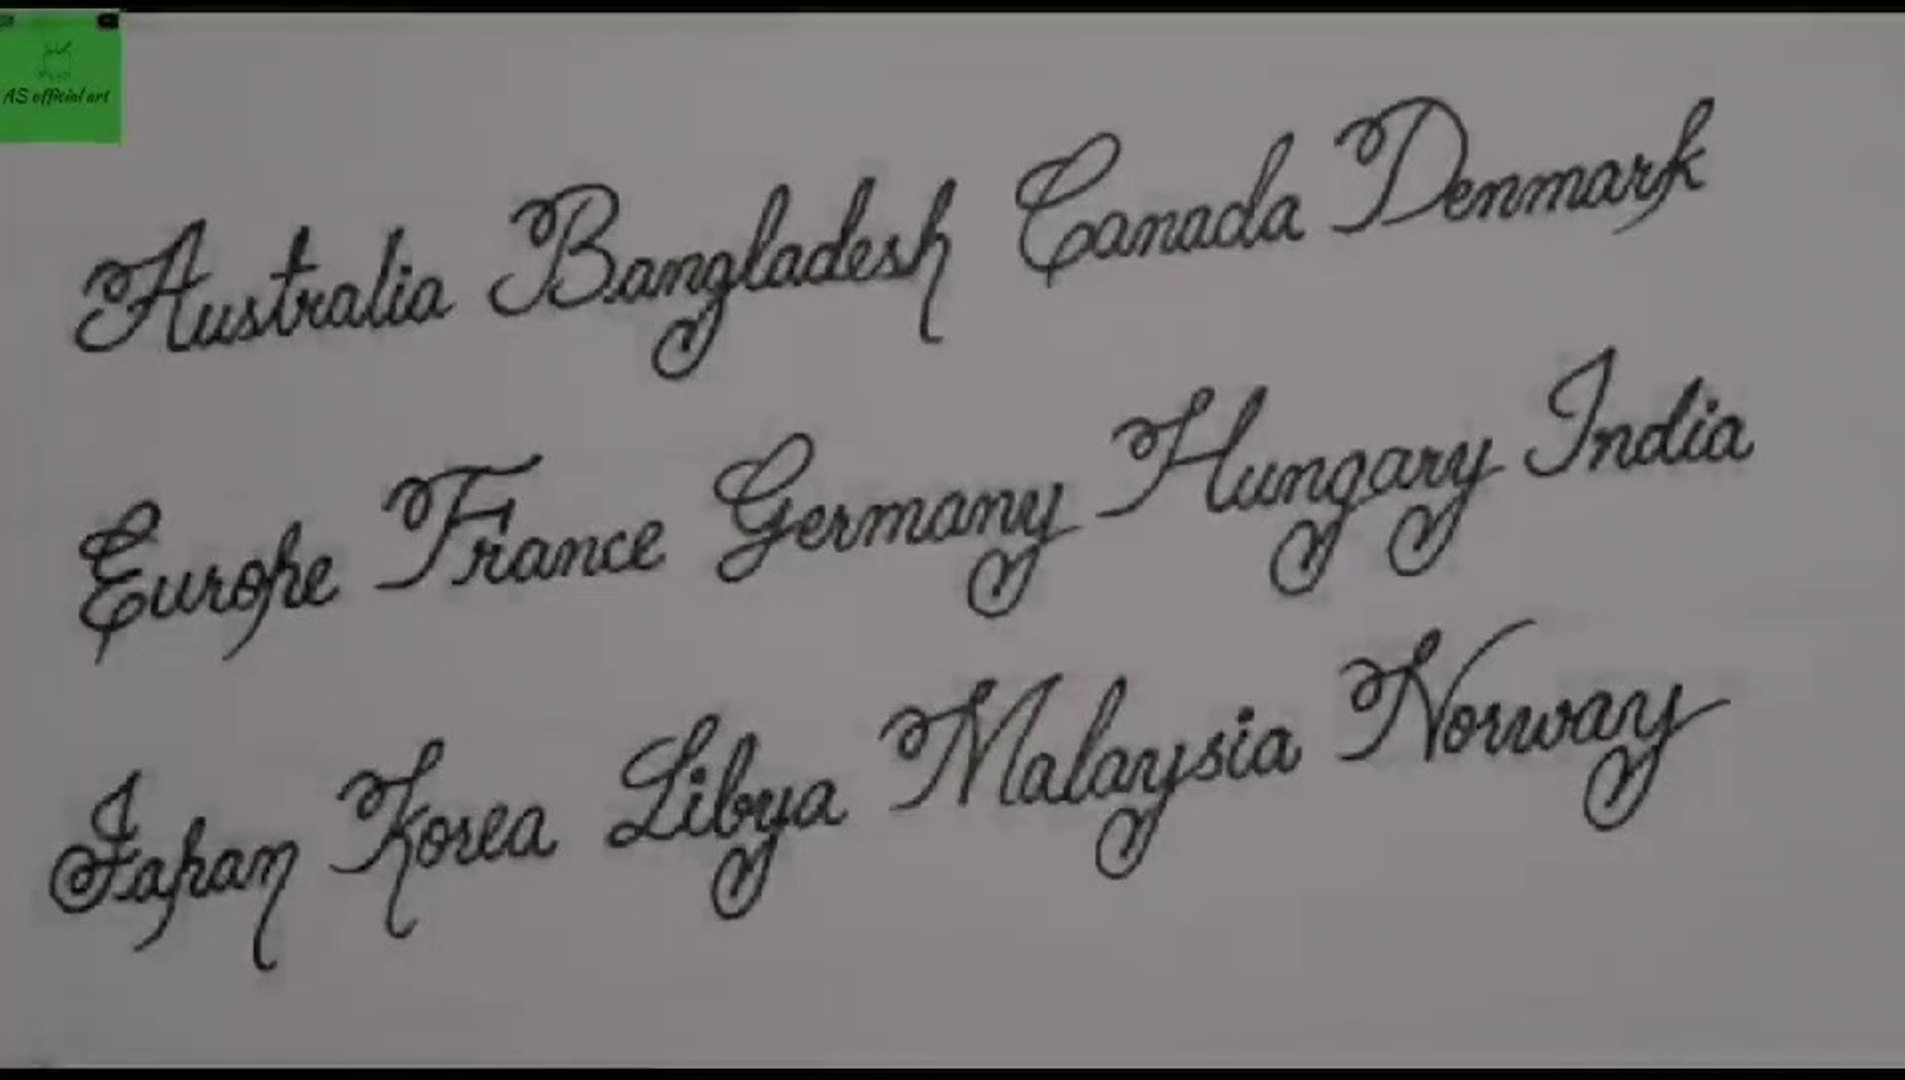 AS official art
Australia Bangladesh Canada Denmark
Europe France Germany Hungary India
Japan Korea Libya Malaysia Norway